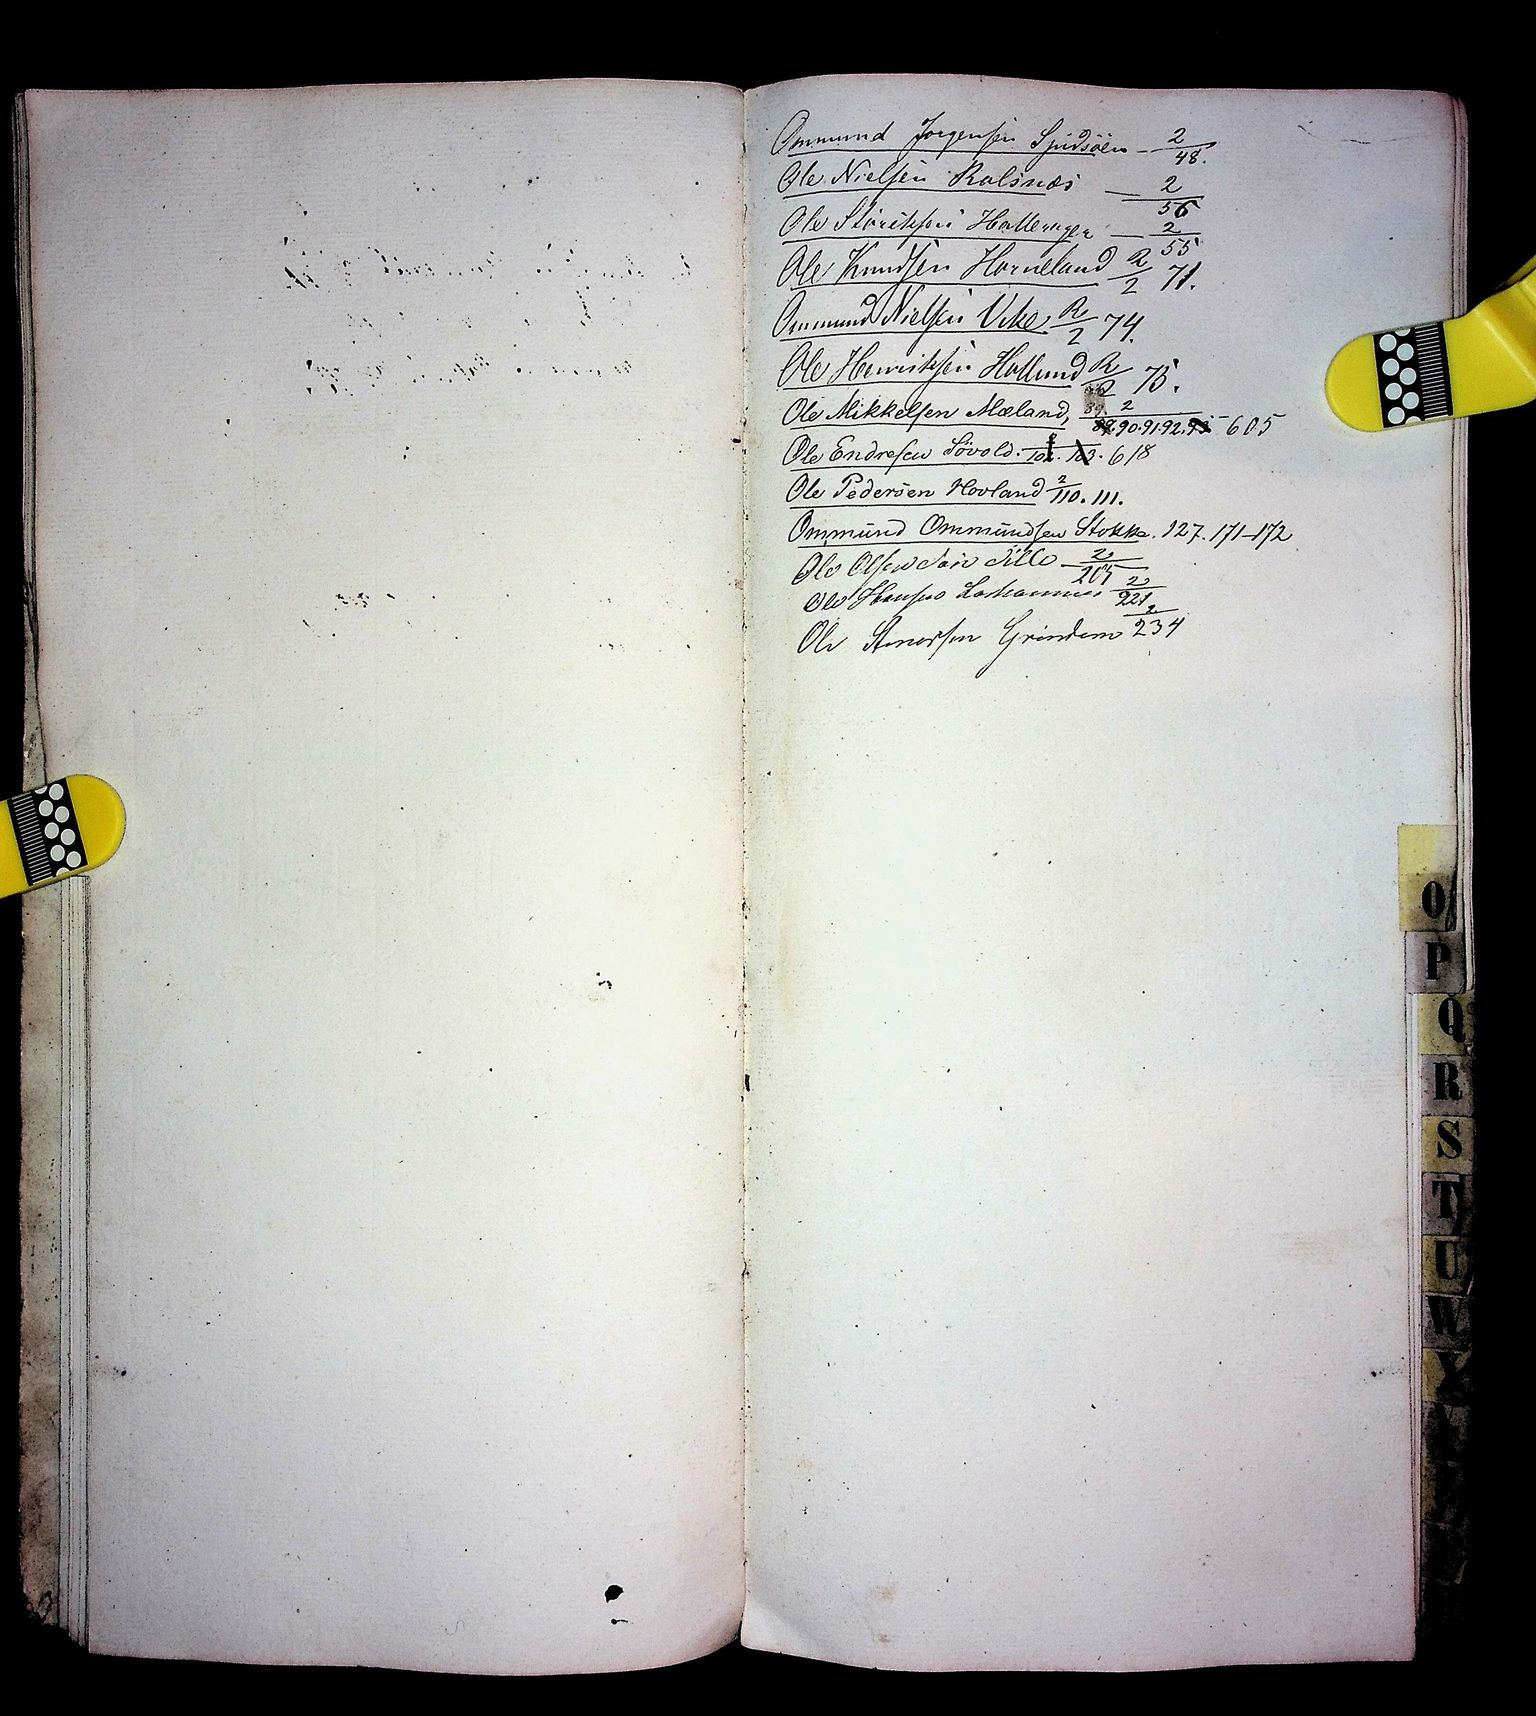 Ommund Jorgensen Spidsöen - 2/48.
Ole Nielsen Ralsnæs — 2/56
Ole Storiksen — 2/55
Ole Knudsen Horneland R/2 71.
Ommund Nielsen Vike R/2 74.
Ole Henriksen Hollund R/2 75.
Ole Mikkelsen Mæland, 2/89.90.91.92.93 - 605
Ole Endresen Sövold. 102. 103. 618
Ole Pedersen Hovland 2/110. 111.
Ommund Ommundsen Stokke. 127. 171-172
Ole Olsen 2/205
Ole Hansen 2/221
Ole Grindem 2/234
O
P
Q
R
S
T
U
W
X